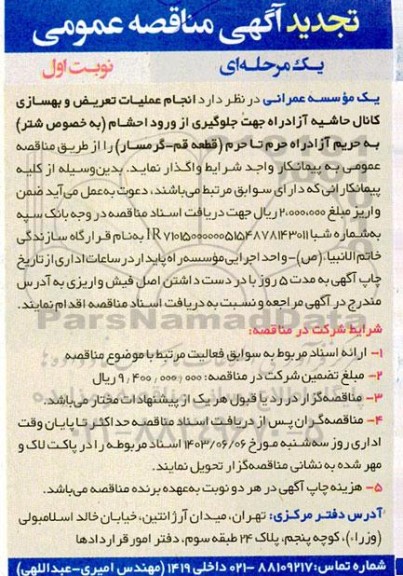 تجدید آگهی مناقصه عمومی
یک مرحله‌ای
نوبت اول
یک مؤسسه عمرانی در نظر دارد انجام عملیات تعریض و بهسازی
کانال حاشیه آزادراه جهت جلوگیری از ورود احشام (به خصوص شتر)
به حریم آزادراه حرم تا حرم (قطعه قم-گرمسار) را از طریق مناقصه
عمومی به پیمانکار واجد شرایط واگذار نماید. بدین‌وسیله از کلیه
پیمانکارانی که دارای سوابق مرتبط می‌باشند، دعوت به‌عمل می‌آید ضمن
واریز مبلغ ۲.۰۰۰.۰۰۰ ریال جهت دریافت اسناد مناقصه در وجه بانک سپه
به‌شماره شبا IR به‌نام قرارگاه سازندگی
خاتم الانبیا (ص)-واحد اجرایی مؤسسه راه پایدار در ساعات اداری از تاریخ
چاپ آگهی به مدت ۵ روز با در دست داشتن اصل فیش واریزی به آدرس
مندرج در آگهی مراجعه و نسبت به دریافت اسناد مناقصه اقدام نمایند.
ParsNamadData
شرایط شرکت در مناقصه:
۱- ارائه اسناد مربوط به سوابق فعالیت مرتبط با موضوع مناقصه
۲- مبلغ تضمین شرکت در مناقصه: ۹,۴۰۰,۰۰۰,۰۰۰ ریال
۳- مناقصه‌گزار در رد یا قبول هر یک از پیشنهادات مختار می‌باشد.
۴- مناقصه‌گران پس از دریافت اسناد مناقصه حداکثر تا پایان وقت
اداری روز سه‌شنبه مورخ ۱۴۰۳/۰۶/۰۶ اسناد مربوطه را در پاکت لاک و
مهر شده به نشانی مناقصه‌گزار تحویل نمایند.
۵- هزینه چاپ آگهی در هر دو نوبت به‌عهده برنده مناقصه می‌باشد.
آدرس دفتر مرکزی: تهران، میدان آرژانتین، خیابان خالد اسلامبولی
(وزرا)، کوچه پنجم، پلاک ۲۴ طبقه سوم، دفتر امور قراردادها
شماره تماس: ۸۸۱۰۹۲۱۷-۰۲۱ داخلی ۱۴۱۹ (مهندس امیری-عبداللهی)